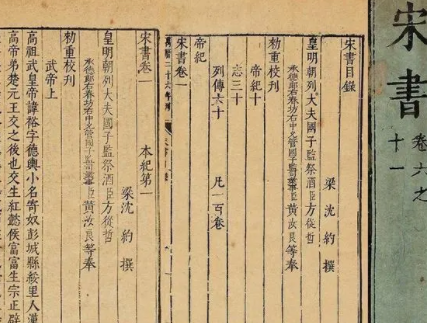 宋書
卷六之
十一
宋書目錄
梁沈約撰
皇明朝列大夫國子監祭酒臣方從哲
承德郎右春坊右中允管國子監司業事臣黃汝良等奉
勅重校刊
帝紀十
志三十
列傳六十
凡一百卷
帝紀
宋書卷一
萬曆二十六年刊
宋書卷一
本紀第一
梁沈約撰
皇明朝列大夫國子監祭酒臣方從哲
承德郎右春坊右中允管國子監司業事臣黃汝良等奉
勅重校刊
武帝上
高祖武皇帝諱裕字德輿小名寄奴彭城縣綏里人漢
高帝弟楚元王交之後也交生紅懿侯富富生宗正辟